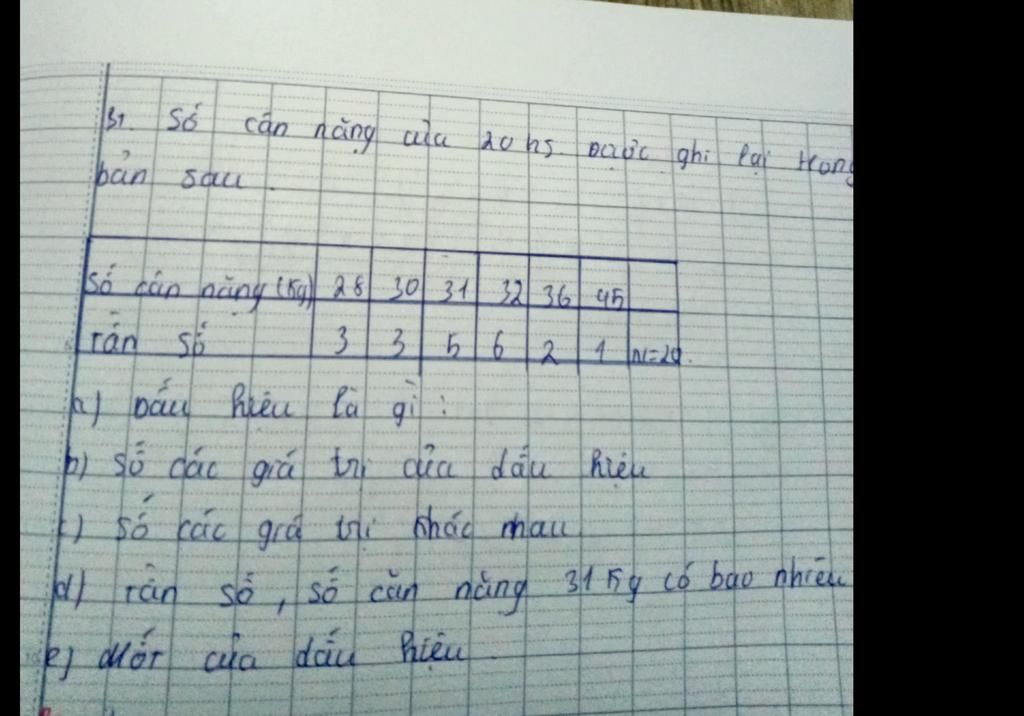 B1. Số cân nặng của 20 hs được ghi lại trong
bản sau
Số cân nặng (Kg) 28 30 31 32 36 45
Tần số 3 3 5 6 2 1 N=20
a) Dấu hiệu là gì :
b) số các giá trị của dấu hiệu
c) số các giá trị khác nhau
d) Tần số, số cân nặng 31 Kg có bao nhiêu
e) Mốt của dấu hiệu